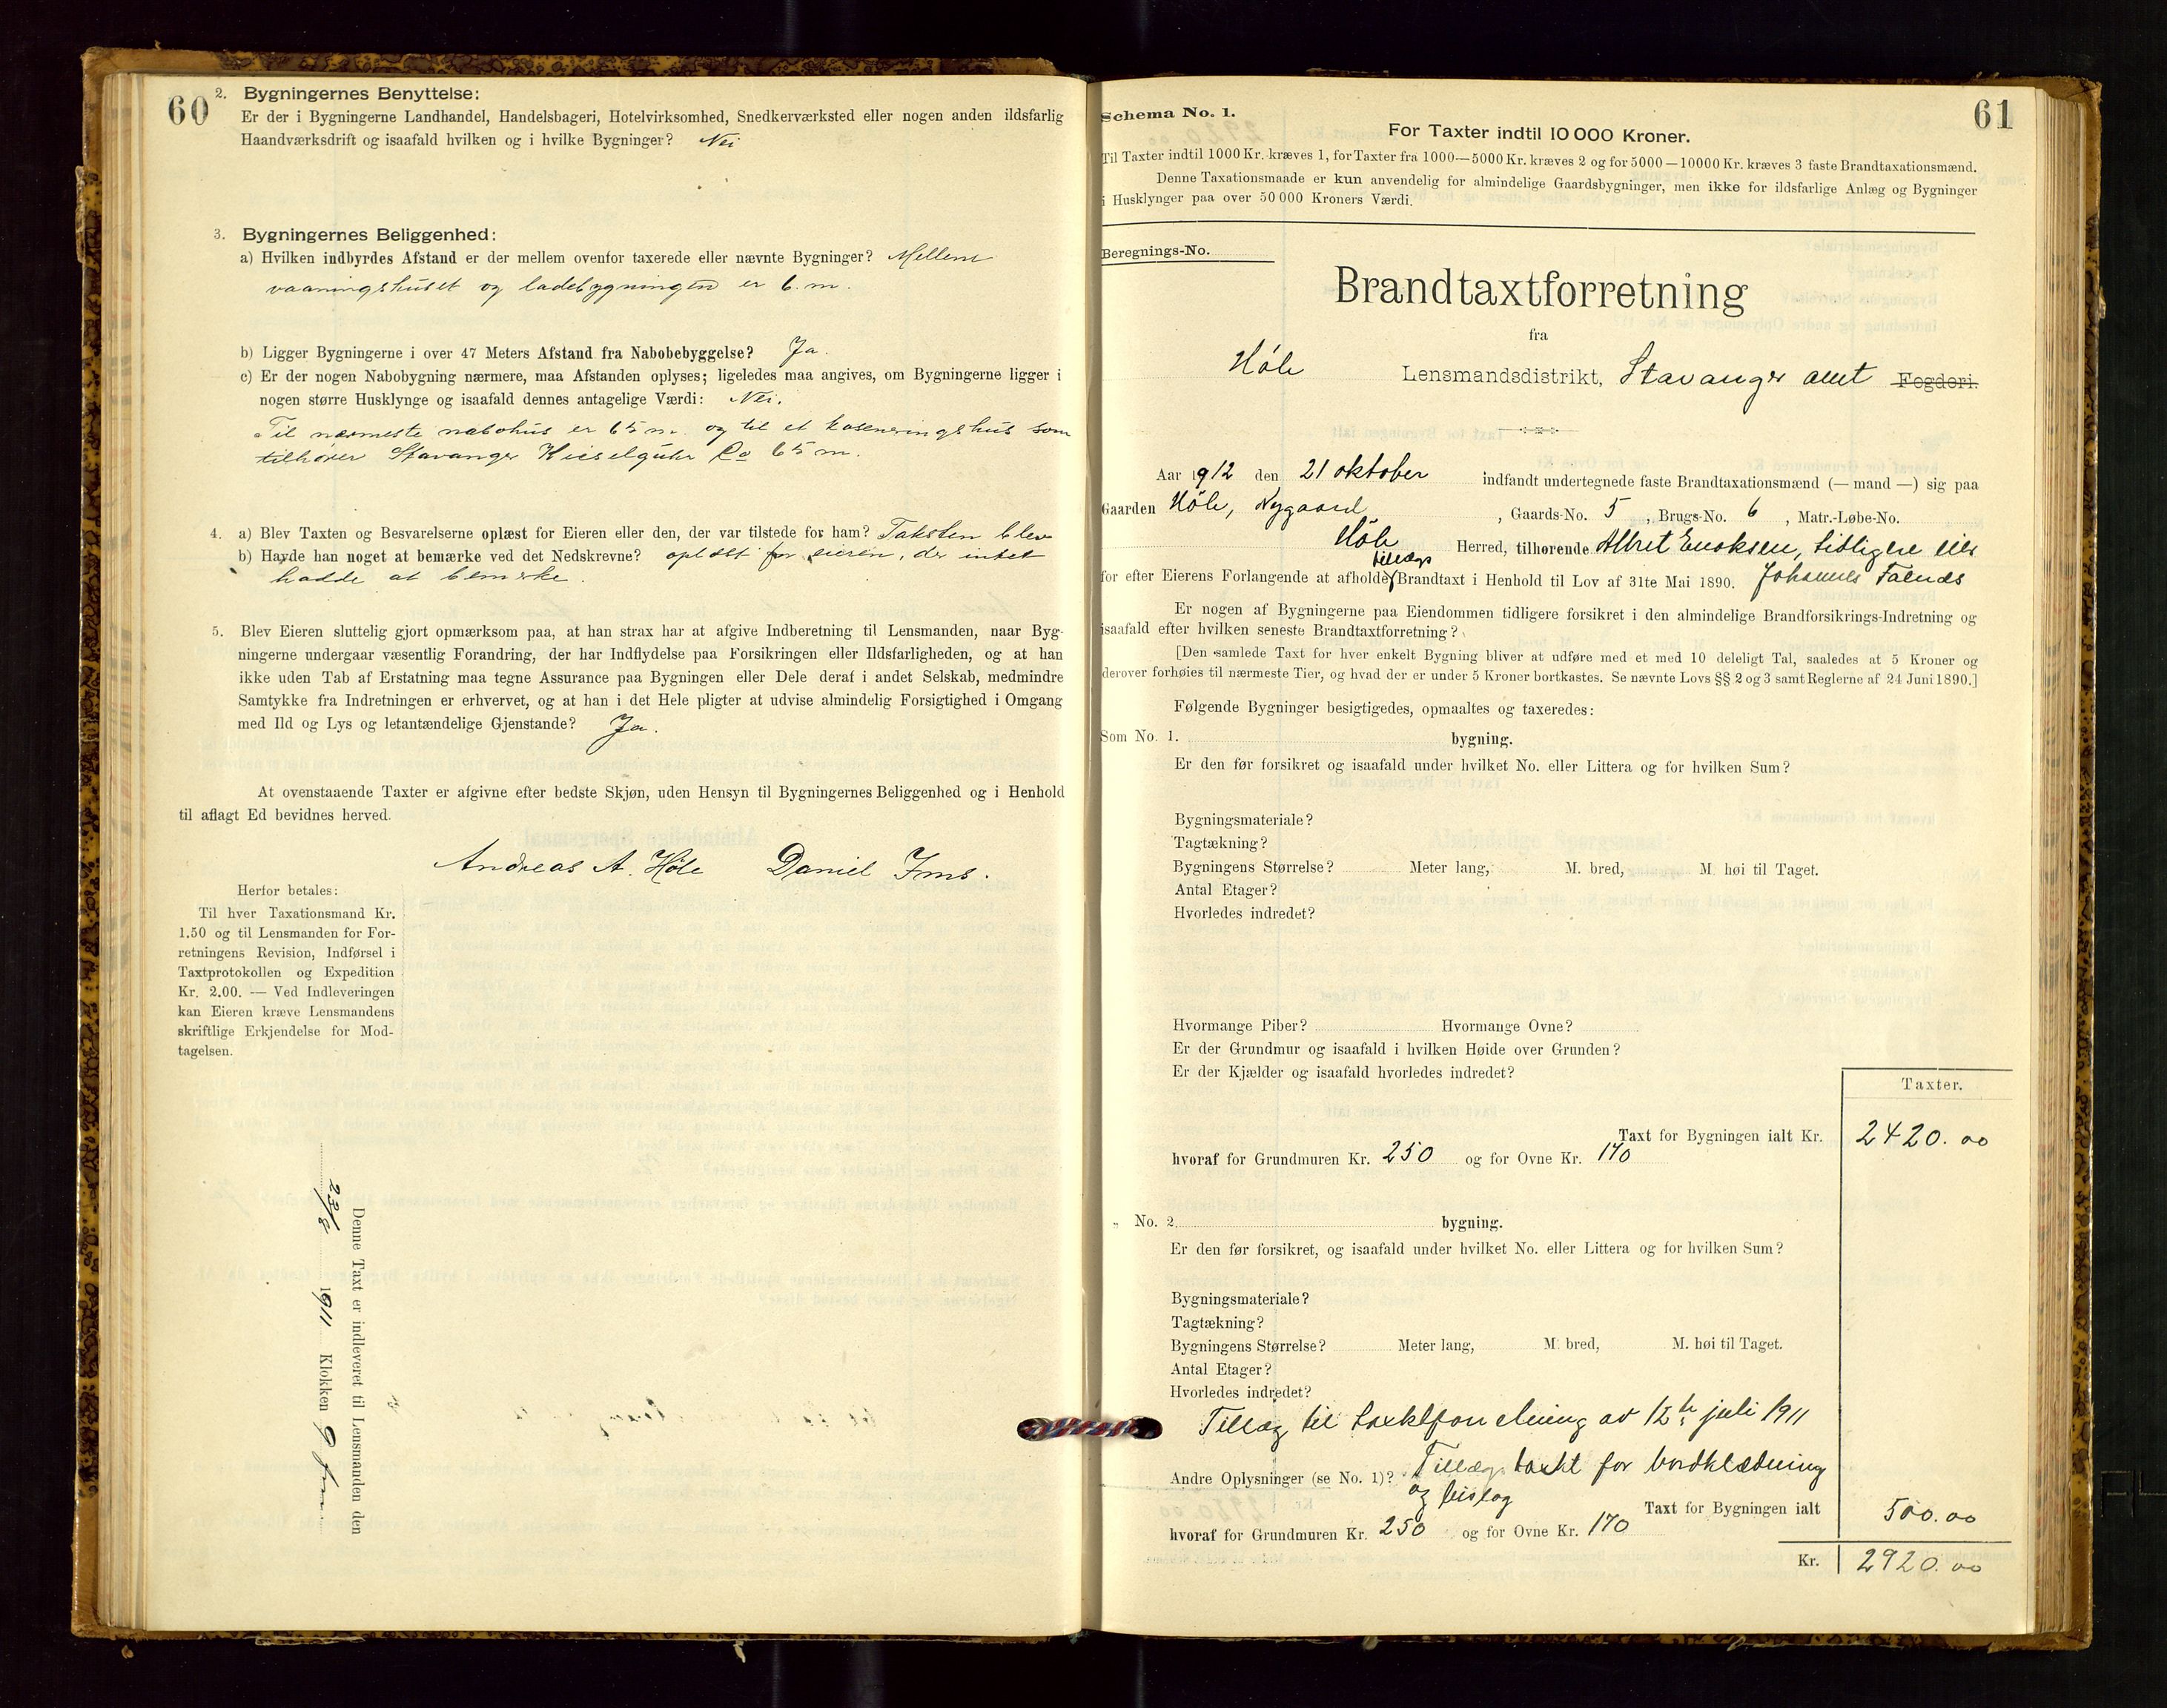 60
2. Bygningernes Benyttelse:
Er der i Bygningerne Landhandel, Handelsbageri, Hotelvirksomhed, Snedkerværksted eller nogen anden ildsfarlig
Haandværksdrift og isaafald hvilken og i hvilke Bygninger? Nei
3. Bygningernes Beliggenhed:
a) Hvilken indbyrdes Afstand er der mellem ovenfor taxerede eller nævnte Bygninger? Mellem
vaaningshuset og ladebygningen er 6. m.
b) Ligger Bygningerne i over 47 Meters Afstand fra Nabobebyggelse? Ja.
c) Er der nogen Nabobygning nærmere, maa Afstanden oplyses; ligeledes maa angives, om Bygningerne ligger i
nogen større Husklynge og isaafald dennes antagelige Værdi: Nei.
Til nærmeste nabohus er 65 m. og til et som
tilhører Stavanger Kieselguhr Co 65 m.
4. a) Blev Taxten og Besvarelserne oplæst for Eieren eller den, der var tilstede for ham? Taksten blev
b) Havde han noget at bemærke ved det Nedskrevne? oplæst for eieren, der intet
hadde at bemerke.
5. Blev Eieren sluttelig gjort opmærksom paa, at han strax har at afgive Indberetning til Lensmanden, naar Byg-
ningerne undergaar væsentlig Forandring, der har Indflydelse paa Forsikringen eller Ildsfarligheden, og at han
ikke uden Tab af Erstatning maa tegne Assurance paa Bygningen eller Dele deraf i andet Selskab, medmindre
Samtykke fra Indretningen er erhvervet, og at han i det Hele pligter at udvise almindelig Forsigtighed i Omgang
med Ild og Lys og letantændelige Gjenstande? Ja.
At ovenstaaende Taxter er afgivne efter bedste Skjøn, uden Hensyn til Bygningernes Beliggenhed og i Henhold
til aflagt Ed bevidnes herved.
Andreas A. Høle Daniel Ims.
Herfor betales:
Til hver Taxationsmand Kr.
1.50 og til Lensmanden for For-
retningens Revision, Indførsel i
Taxtprotokollen og Expedition
Kr. 2.00. — Ved Indleveringen
kan Eieren kræve Lensmandens
skriftlige Erkjendelse for Mod-
tagelsen.
Denne Taxt er indleveret til Lensmanden den
23/8 1911 Klokken 9 fm.
61
Schema No. 1.
For Taxter indtil 10 000 Kroner.
Til Taxter indtil 1000 Kr. kræves 1, for Taxter fra 1000—5000 Kr. kræves 2 og for 5000—10000 Kr. kræves 3 faste Brandtaxationsmænd.
Denne Taxationsmaade er kun anvendelig for almindelige Gaardsbygninger, men ikke for ildsfarlige Anlæg og Bygninger
i Husklynger paa over 50 000 Kroners Værdi.
Beregnings-No.
Brandtaxtforretning
fra
Høle Lensmandsdistrikt, Stavanger amt Fogderi.
Aar 1912 den 21 oktober indfandt undertegnede faste Brandtaxationsmænd (— mand —) sig paa
Gaarden Høle, Nygaard, Gaards-No. 5, Brugs-No. 6, Matr.-Løbe-No.
Høle Herred, tilhørende Albret Enoksen, tidligere eier
tillægs
for efter Eierens Forlangende at afholde Brandtaxt i Henhold til Lov af 31te Mai 1890. Johannes
Er nogen af Bygningerne paa Eiendommen tidligere forsikret i den almindelige Brandforsikrings-Indretning og
isaafald efter hvilken seneste Brandtaxtforretning?
[Den samlede Taxt for hver enkelt Bygning bliver at udføre med et med 10 deleligt Tal, saaledes at 5 Kroner og
derover forhøies til nærmeste Tier, og hvad der er under 5 Kroner bortkastes. Se nævnte Lovs §§ 2 og 3 samt Reglerne af 24 Juni 1890.]
Følgende Bygninger besigtigedes, opmaaltes og taxeredes:
Som No. 1. bygning.
Er den før forsikret og isaafald under hvilket No. eller Littera og for hvilken Sum?
Bygningsmateriale?
Tagtækning?
Bygningens Størrelse? Meter lang, M. bred, M. høi til Taget.
Antal Etager?
Hvorledes indredet?
Hvormange Piber? Hvormange Ovne?
Er der Grundmur og isaafald i hvilken Høide over Grunden?
Er der Kjælder og isaafald hvorledes indredet?
Taxter.
Taxt for Bygningen ialt Kr. 2420.00
hvoraf for Grundmuren Kr. 250 og for Ovne Kr. 170
„ No. 2. bygning.
Er den før forsikret, og isaafald under hvilket No. eller Littera og for hvilken Sum?
Bygningsmateriale?
Tagtækning?
Bygningens Størrelse? Meter lang, M. bred, M. høi til Taget.
Antal Etager?
Hvorledes indredet?
Tillæg til av 12te juli 1911
Andre Oplysninger (se No. 1)? Tillægs takst for bordklædning
og
Taxt for Bygningen ialt 500.00
hvoraf for Grundmuren Kr. 250 og for Ovne Kr. 170
Kr. 2920.00